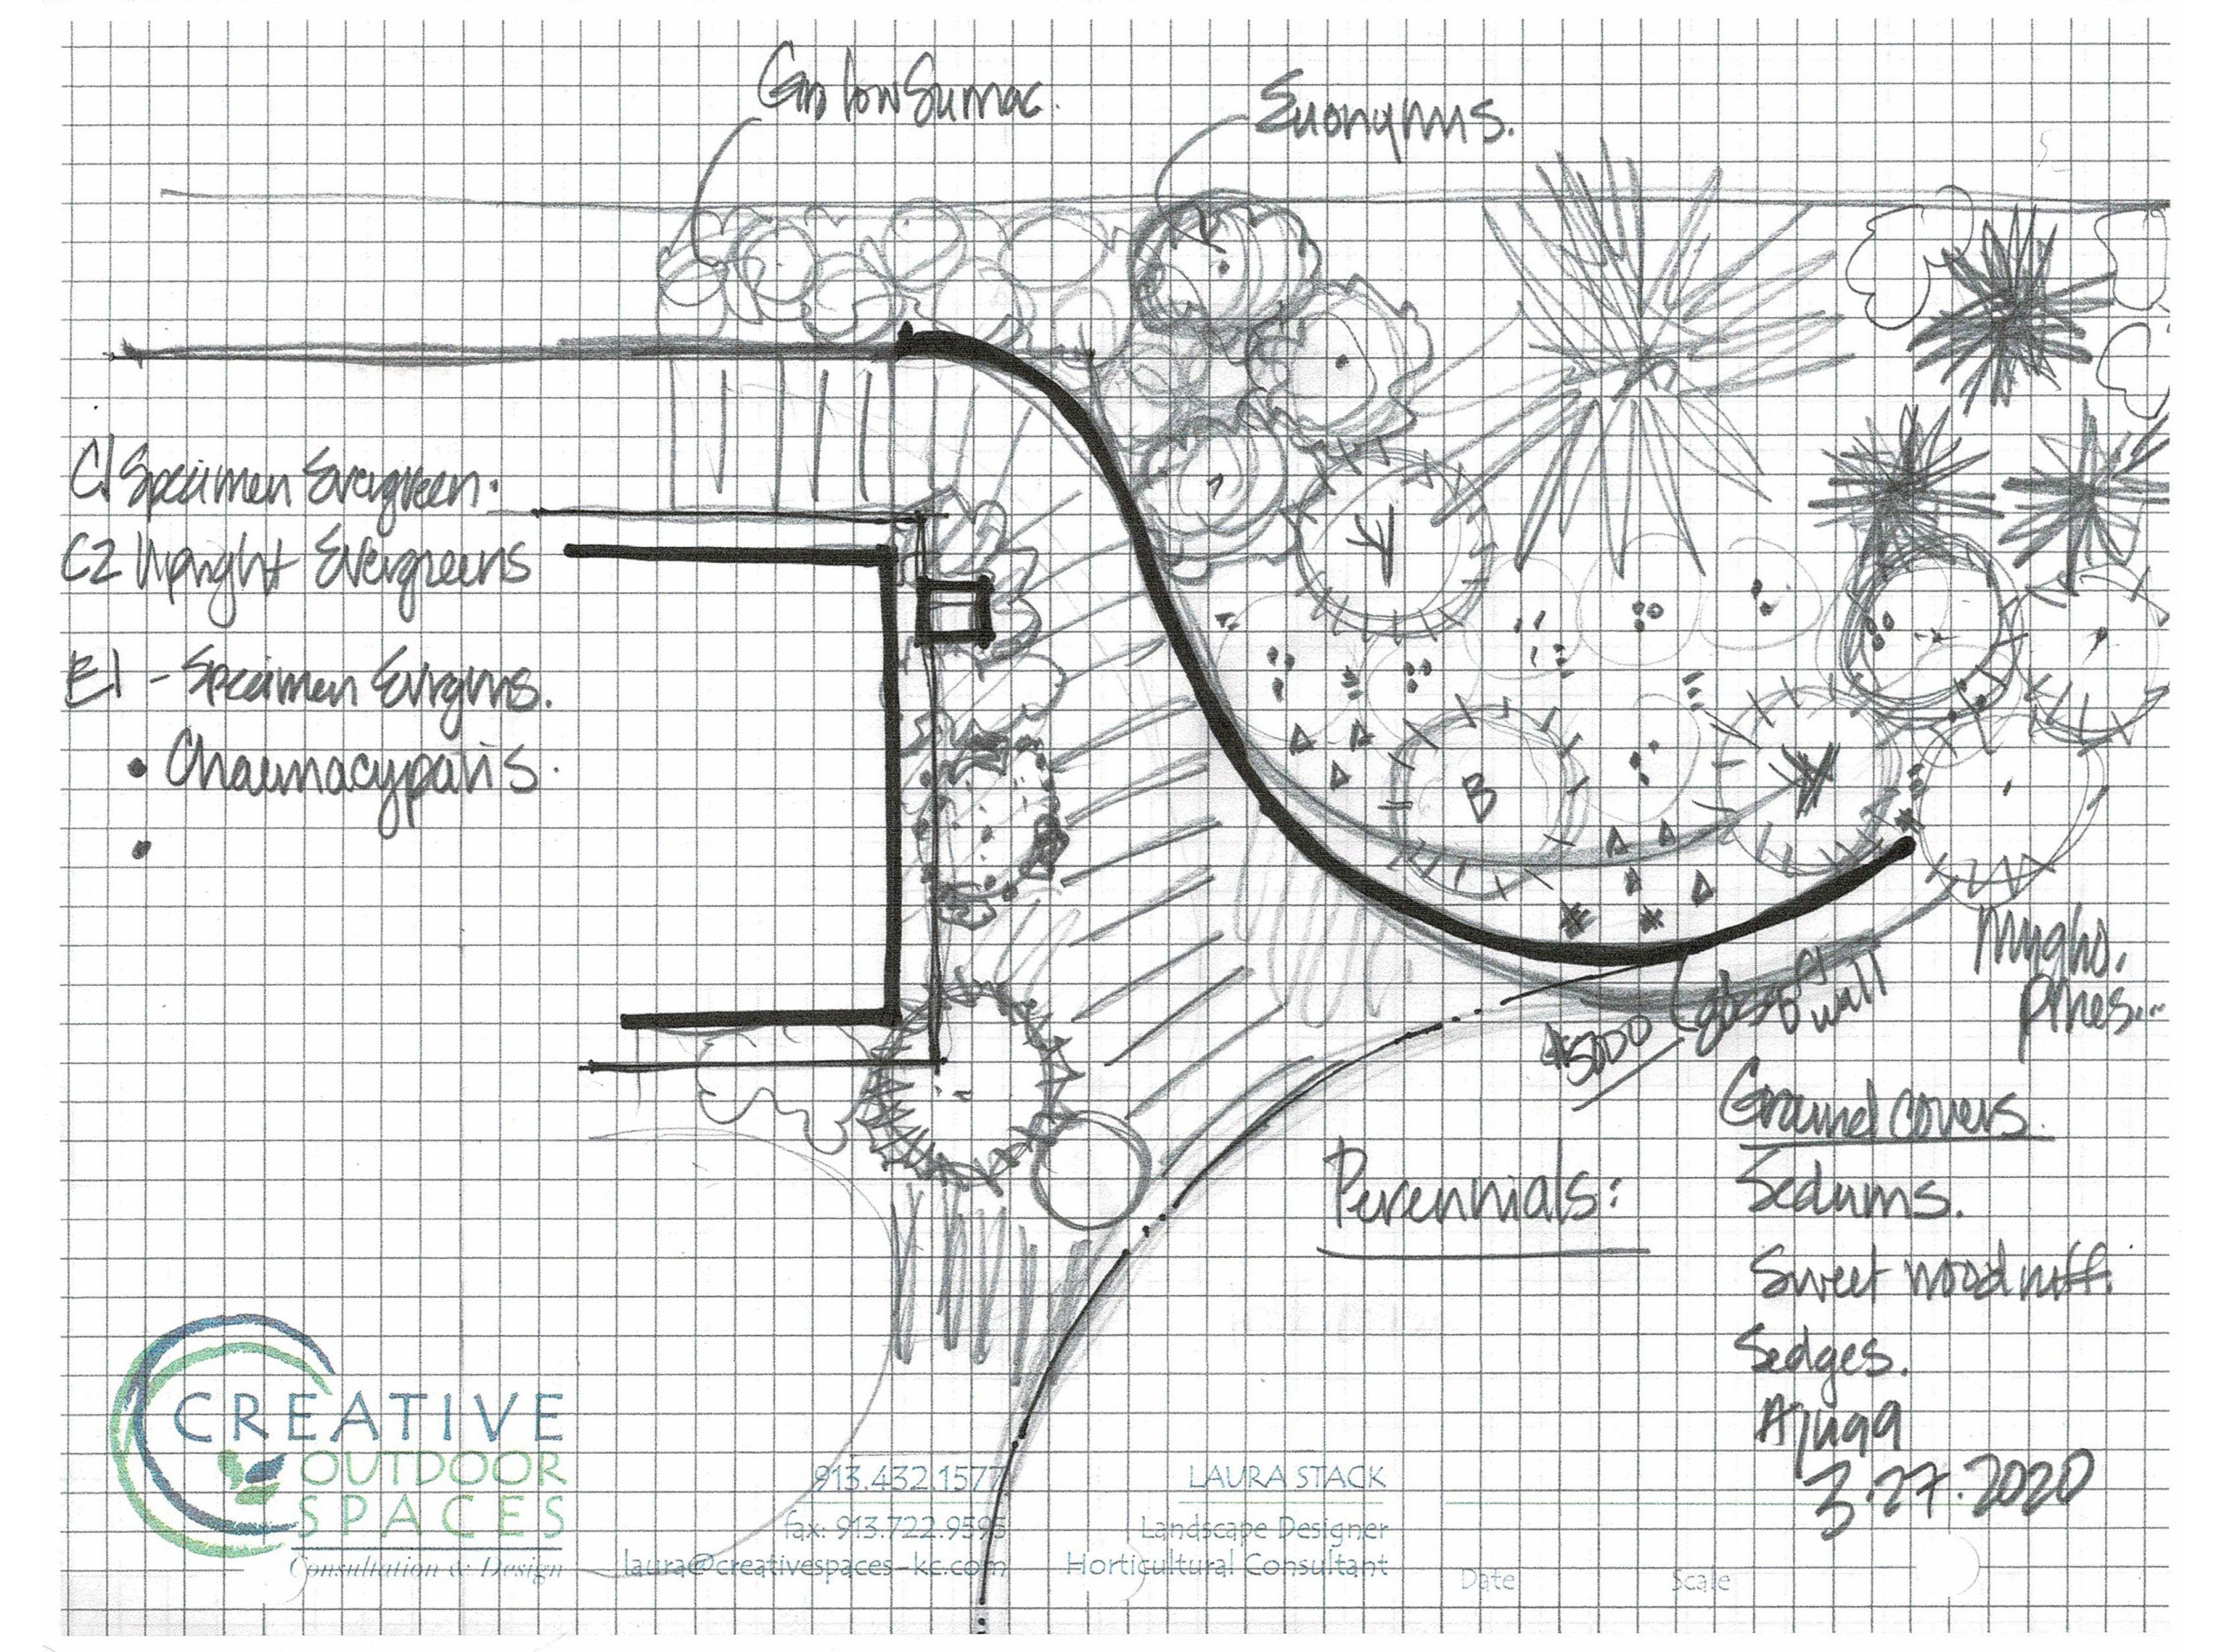 Gro low Sumac.
Euonymus.
C1 Specimen Evergreen.
C2 Upright Evergreens
E1 - Specimen Evrgrns.
• Chaemacyparis.
•
Y
B
Mugho.
pines...
wall
Ground covers.
Perennials:
Sedums.
Sweet woodruff.
Sedges.
Ajuga
3.27.2020
CREATIVE
OUTDOOR
SPACES
Consultation & Design
913.432.1577
fax: 913.722.9595
laura@creativespaces-kc.com
LAURA STACK
Landscape Designer
Horticultural Consultant
Date
Scale